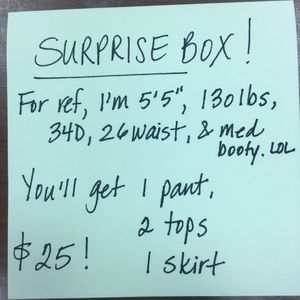 SURPRISE BOX!
For ref, I'm 5'5", 130lbs,
34D, 26waist, & med
booty. LOL
You'll get 1 pant,
2 tops
$25! 1 skirt